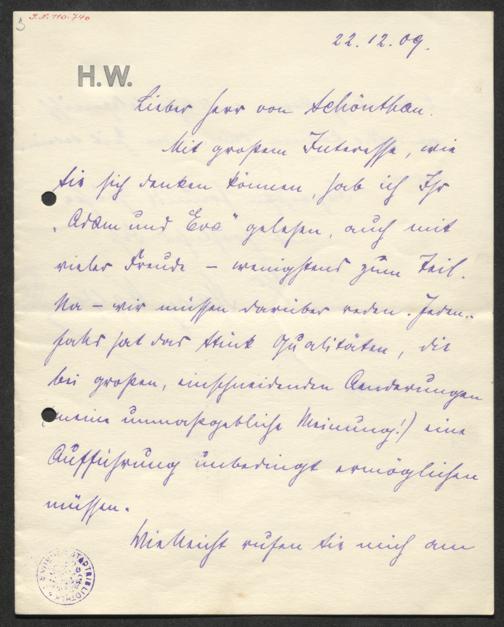 3
I.N. 110.740
22.12.09.
H.W.
Lieber Herr von Schönthan.
Mit großem Interesse, wie
Sie sich denken können, hab ich Ihr
„Adam und Eva" gelesen, auch mit
vieler Freude – wenigstens zum Teil.
Na – wir müssen darüber reden. Jeden-
falls hat das Stück Qualitäten, die
bei großen, einschneidenden Aenderungen
(meine unmaßgebliche Meinung!) eine
Aufführung unbedingt ermöglichen
müssen.
Vielleicht rufen Sie mich am